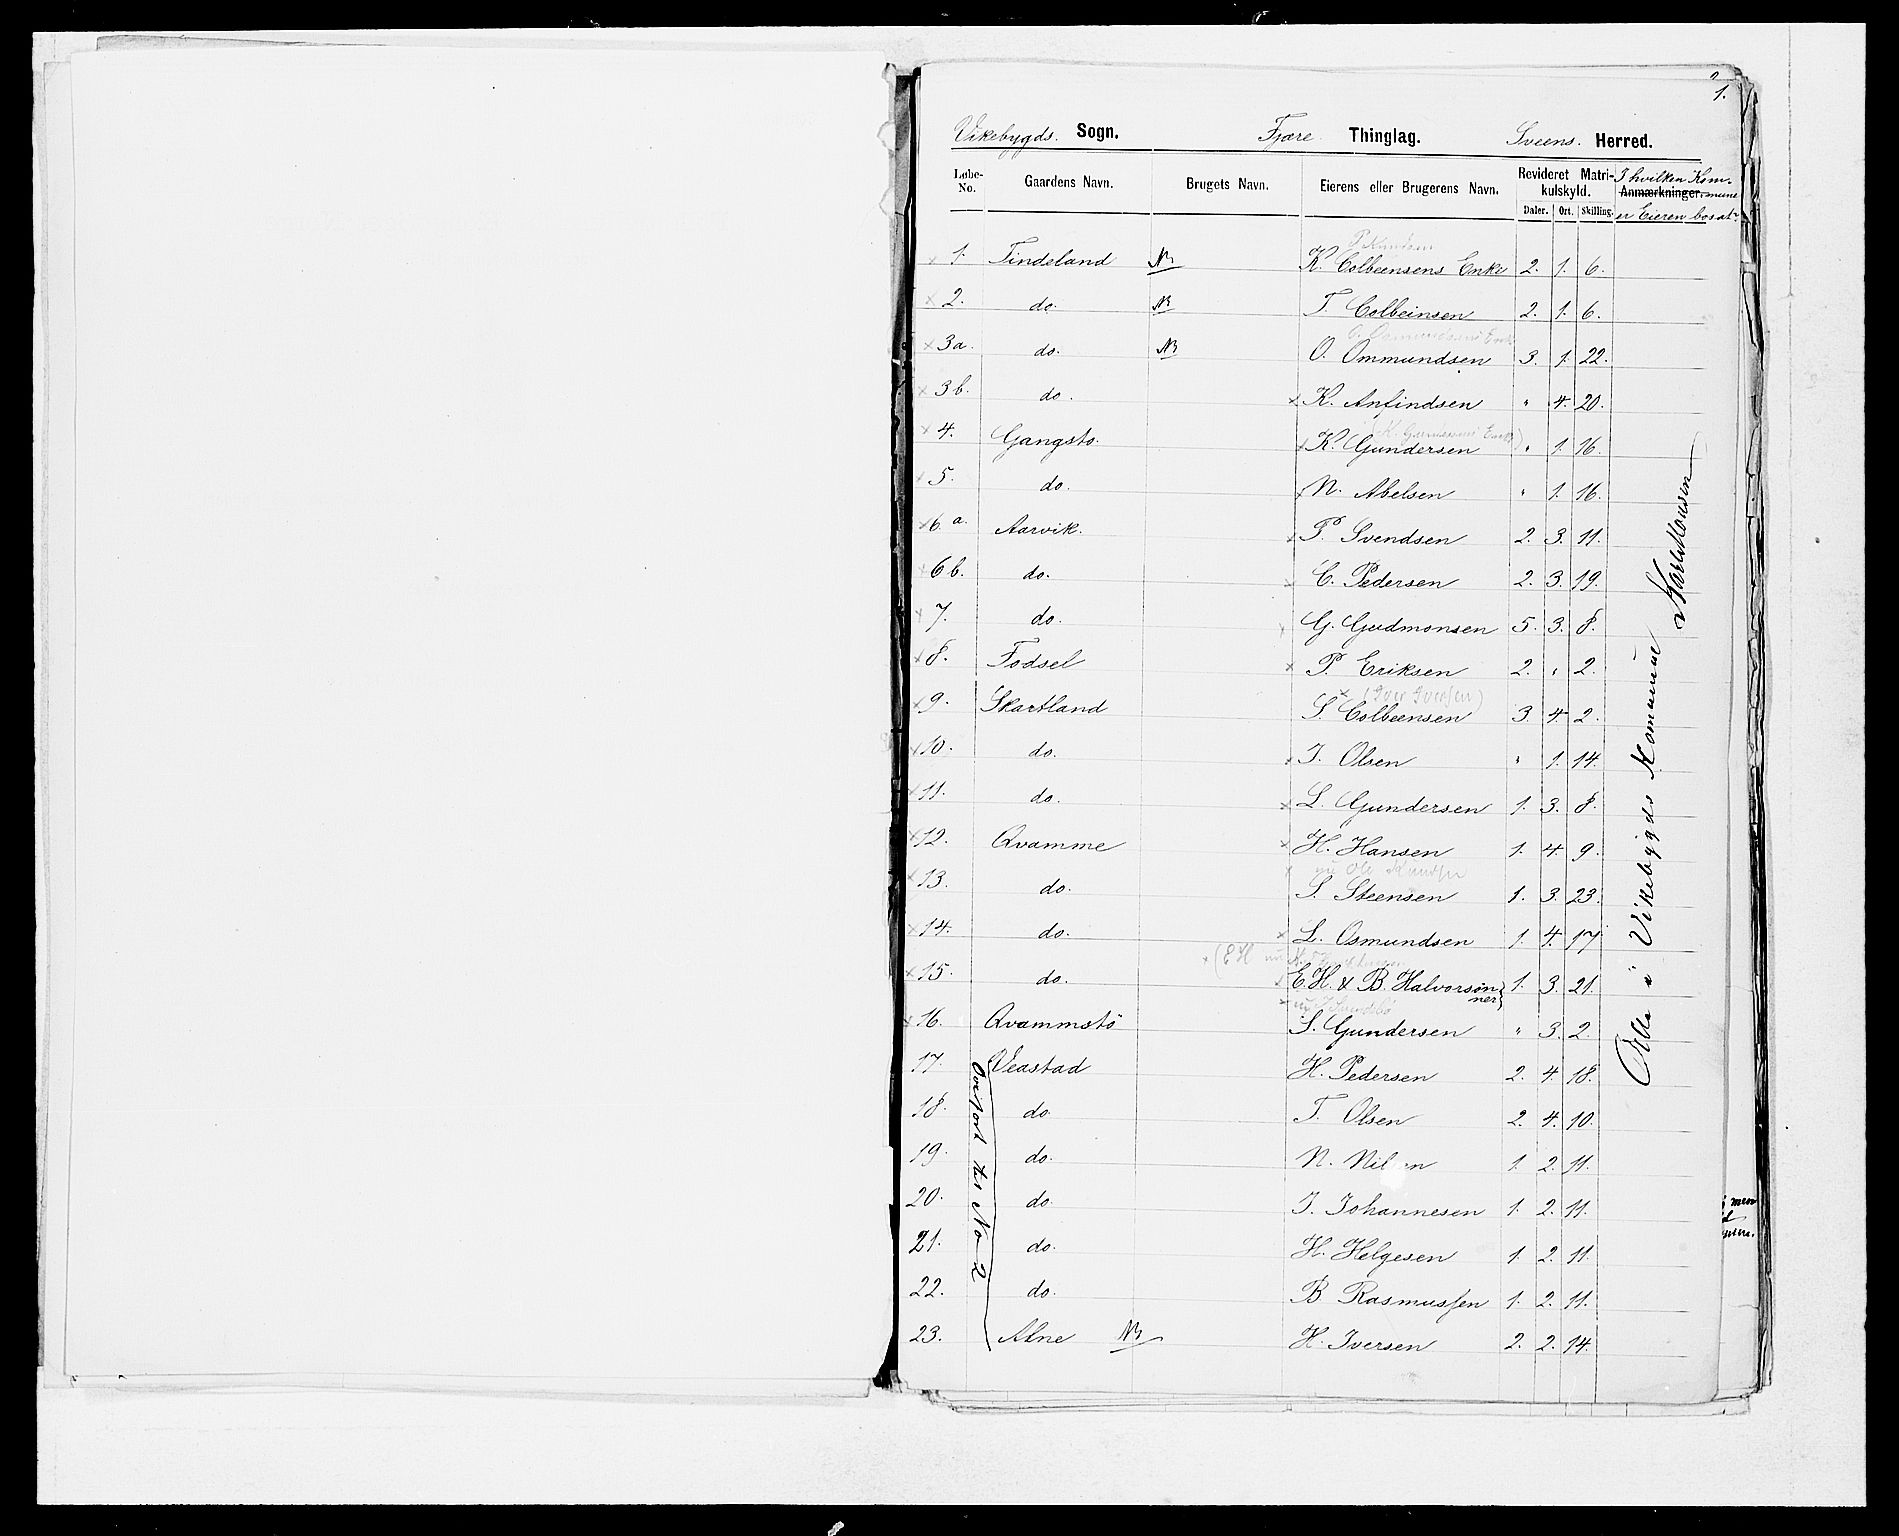 1.
Vikebygds. Sogn. Fjære Thinglag. Sveens. Herred.
Løbe-No. Gaardens Navn. Brugets Navn. Eierens eller Brugerens Navn. Revideret Matrikulskyld. Daler. Ort. Skilling. Anmærkninger. I hvilken Kommune er Eieren bosat
1. Tindeland NB K. Colbeensens Enke 2. 1. 6.
2. do. NB T. Colbeinsen 2. 1. 6.
3a. do. NB O. Ommundsen 3. 1. 22.
3b. do. K. Anfindsen " 4. 20.
4. Gangstø. K. Gundersen " 1. 16.
5. do. N. Abelsen " 1. 16.
6.a. Aarvik. P. Svendsen 2. 3. 11.
6b. do. C. Pedersen 2. 3. 19.
7. do. G. Gudmonsen 5. 3. 8.
8. Fodsel P. Eriksen 2. " 2.
(Iver Iversen)
9. Skartland S. Colbeensen 3. 4. 2.
10. do. I. Olsen " 1. 14.
11. do. L. Gundersen 1. 3. 8.
12. Qvamme H. Hansen 1. 4. 9.
nu Ole Knudsen
13. do. S. Steensen 1. 3. 23.
14. do. L. Osmundsen 1. 4. 17
15. do. E. H. & B. Halvorsønner 1. 3. 21.
16. Qvammstö S. Gundersen " 3. 2.
17. Veastad H. Pedersen 2. 4. 18.
18. do. T. Olsen 2. 4. 10.
19. do. N. Nil n 1. 2. 11.
20. do. I. Johannesen 1. 2. 11.
21. do. H. Helgesen 1. 2. 11.
22. do. B Rasmussen 1. 2. 11.
23. Alne NB H. Iversen 2. 2. 14.
Overført til No 2
Alle i Vikebygds Kommune